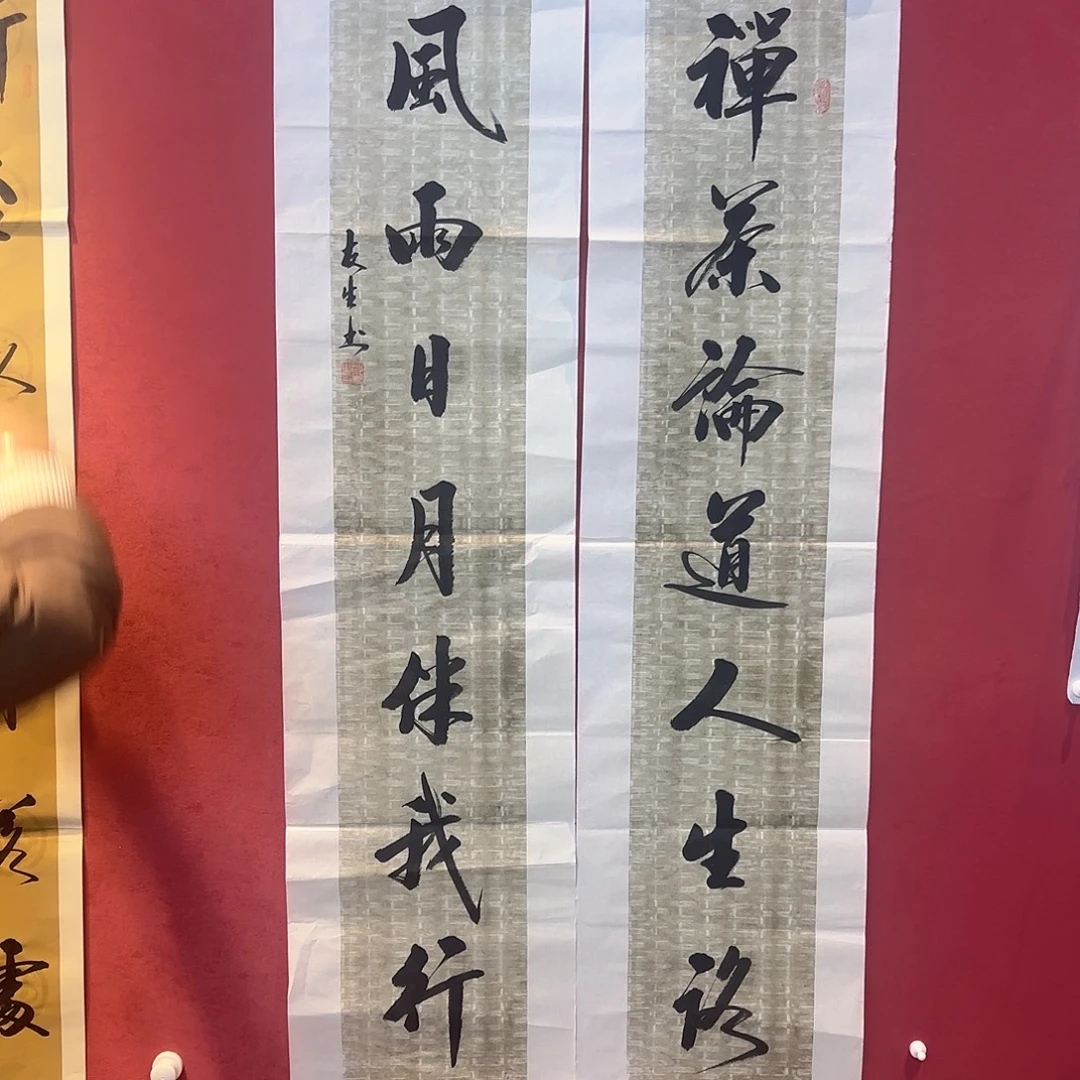 禪茶論道人生路
風雨日月伴我行
友生書